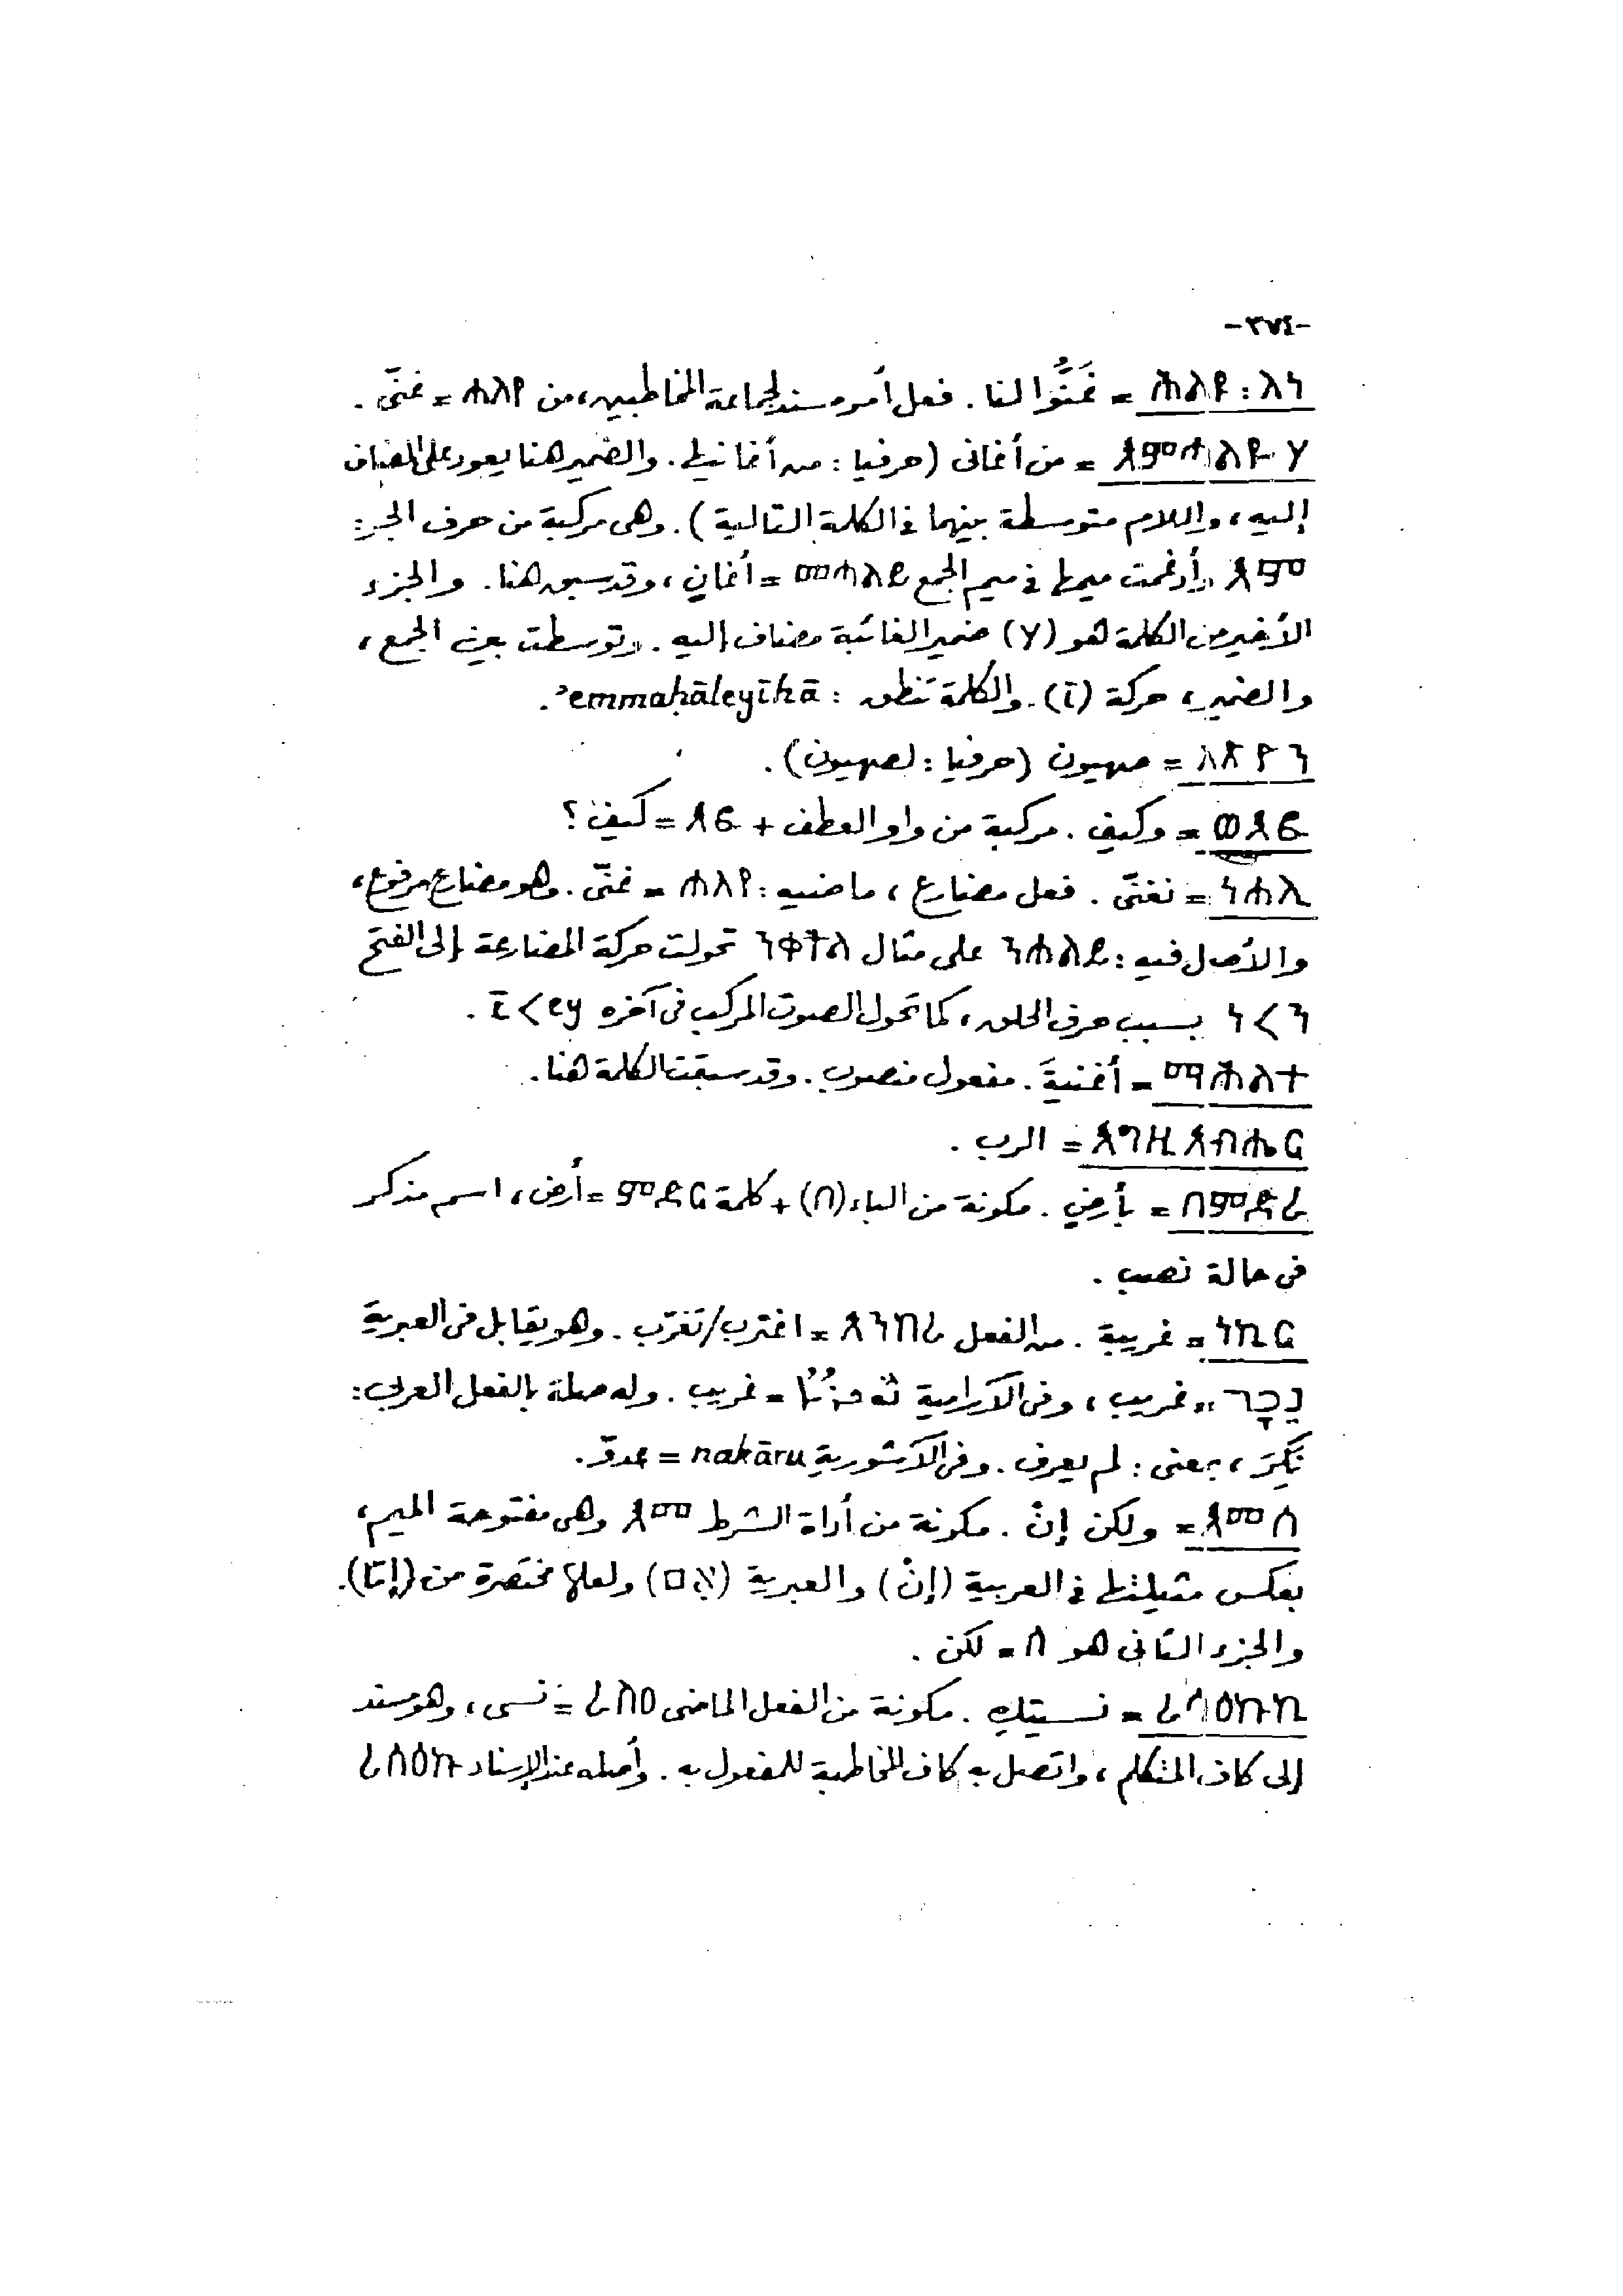 -٣٧٤-
ኃልዩ : ለነ = غَنُّوا لنا . فعل أمر مسند لجماعة المخاطبين، من ኀለየ = غنّى .
እምኃልዪሃ = من أغانى (حرفيا : من أغانيها . والضمير هنا يعود على المضاف
إليه، واللام متوسطة بينهما فى الكلمة التالية) . وهى مركبة من حرف الجر :
እም وأدغمت ميمها فى ميم الجمع = أغانٍ ، وقد سبق هنا . والجزء
الأخير من الكلمة هو (ሃ) ضمير الغائبة مضاف إليه . وتوسطت بين الجمع ،
والضمير، حركة (ī) . والكلمة تنطق : ʾemmaḥāleyīhā .
ለጽዮን = صهيون (حرفيا : لصهيون) .
ወእፎ = وكيف . مركبة من واو العطف + እፎ = كيف ؟
ነኀሊ = نغنّى . فعل مضارع ، ماضيه : ኀለየ = غنّى . وهو مضارع مرفوع،
والأصل فيه : ንኀሊ على مثال ንቀትል تحولت حركة المضارعة إلى الفتح
ን > ነ بسبب حرف الحلق ، كما تحول الصوت المركب فى آخره ī < ey .
ማኅሌተ = أغنيةَ . مفعول منصوب . وقد سبقت الكلمة هنا .
እግዚአብሔር = الرب .
በምድረ = بأرضٍ . مكونة من الباء (በ) + كلمة ምድር = أرض ، اسم مذكر
فى حالة نصب .
ነኪር = غريبة . من الفعل እንከረ = اغترب/تغرّب . وهو يقابل فى العبرية
נֵכָר = غريب ، وفى الآرامية ܢܘܟܪܝܐ = غريب . وله صلة بالفعل العربى :
نَكِرَ ، بمعنى : لم يعرف . وفى الآشورية nakāru = عدوّ .
እመሰ = ولكن إنْ . مكونة من أداة الشرط እመ وهى مفتوحة الميم ،
بعكس مثيلتها فى العربية (إنْ) والعبرية (אִם) ولعلها مختصرة من (إمّا) .
والجزء الثانى هو ሰ = لكن .
ረሳዕኩኪ = نسيتكِ . مكونة من الفعل الماضى ረስዐ = نسى ، وهو مسند
إلى كاف المتكلم ، واتصل به كاف المخاطبة للمفعول به . وأصله عند الإسناد ረሳዕኩ